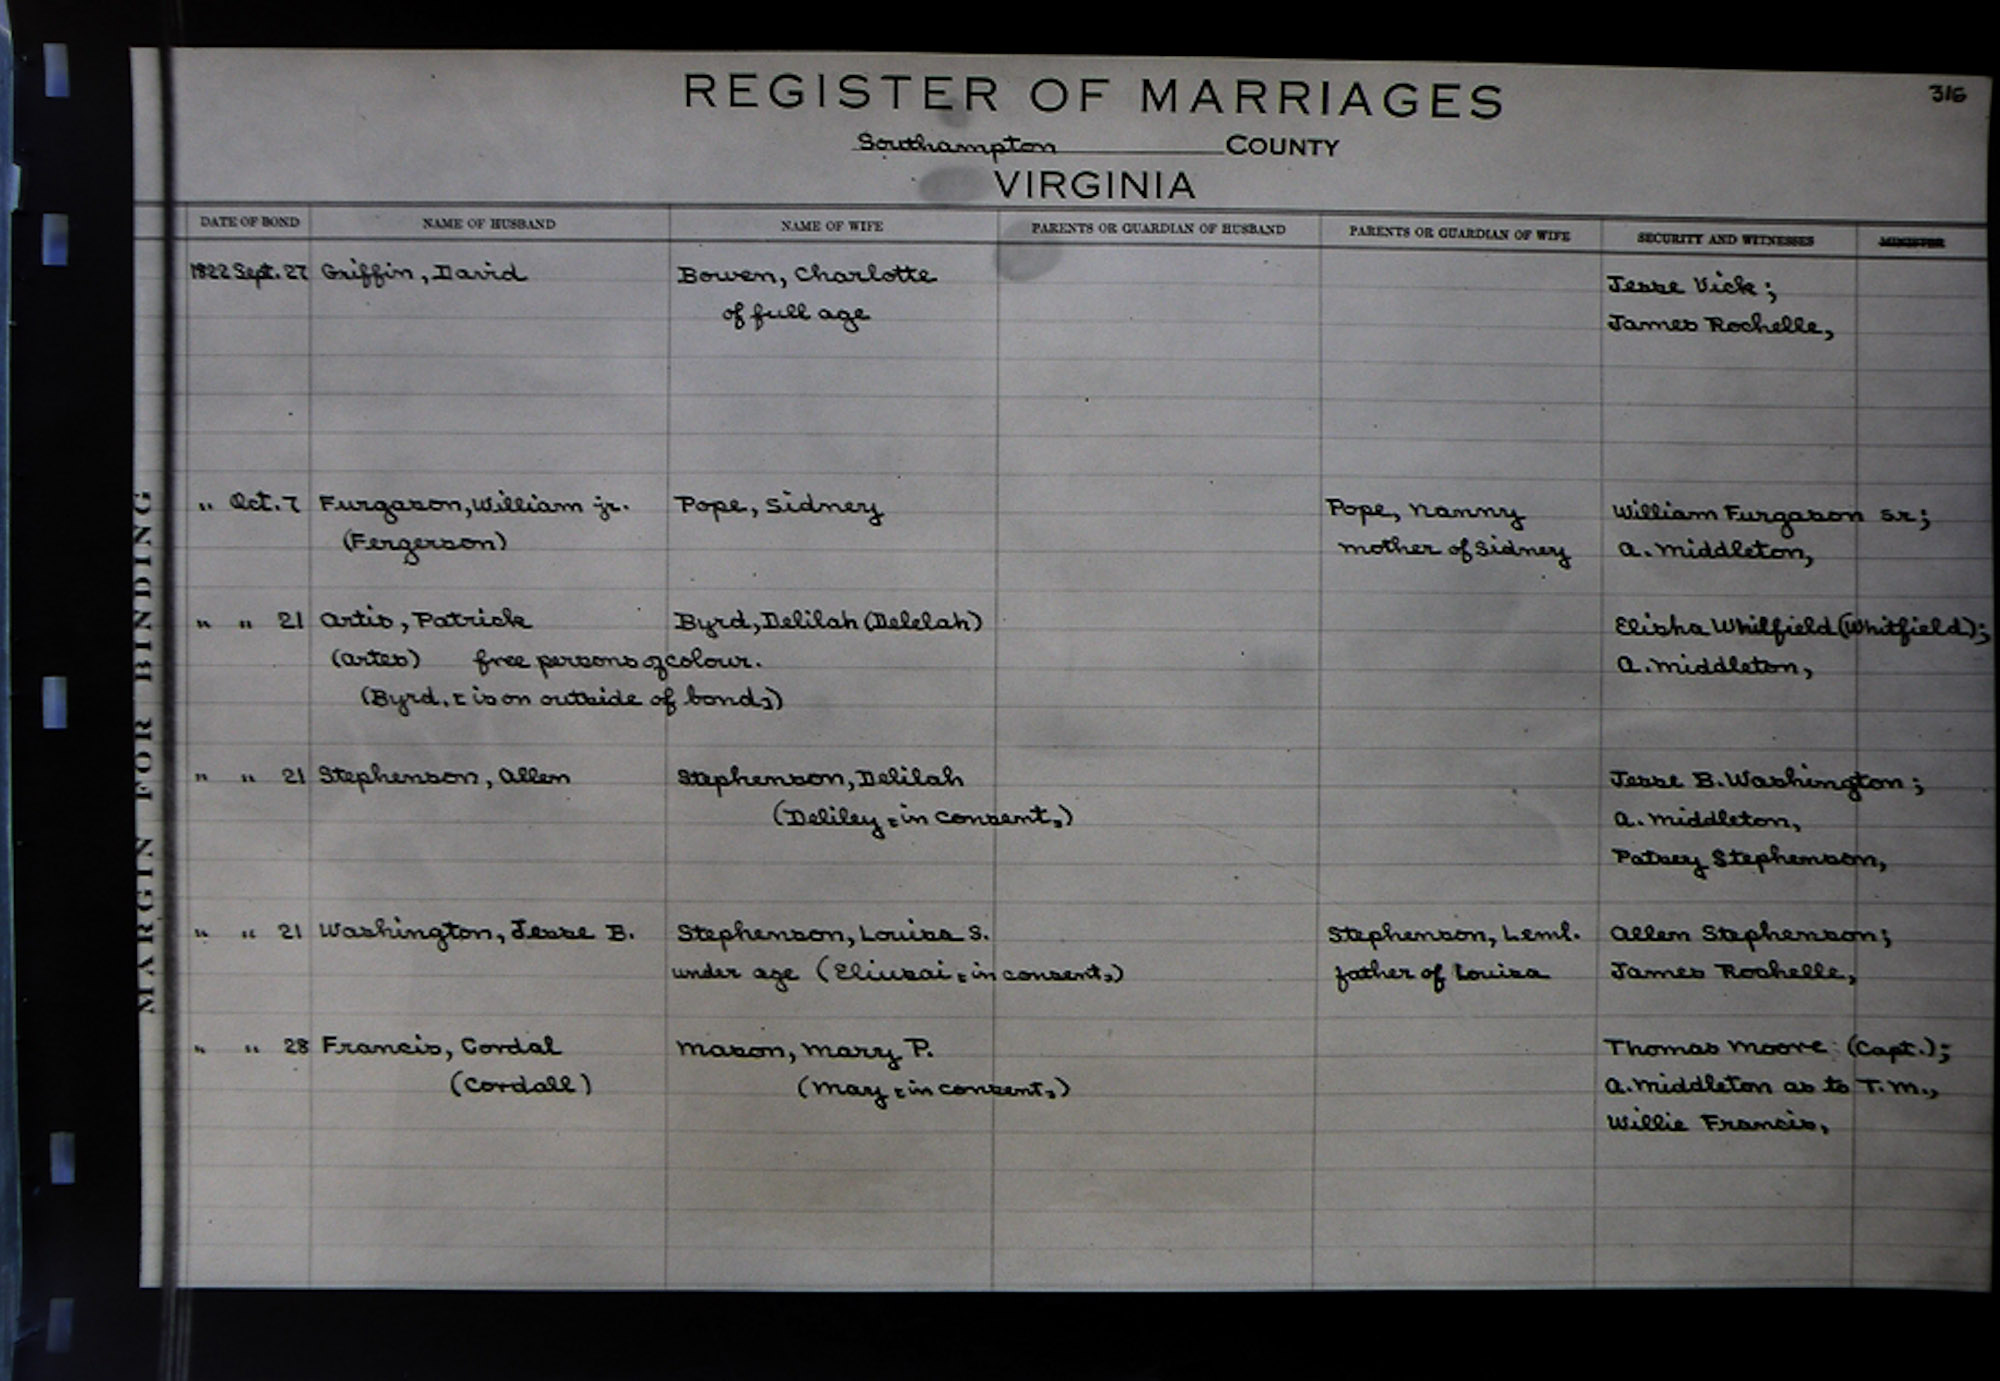 REGISTER OF MARRIAGES
316
Southampton COUNTY
VIRGINIA
DATE OF BOND NAME OF HUSBAND NAME OF WIFE PARENTS OR GUARDIAN OF HUSBAND PARENTS OR GUARDIAN OF WIFE SECURITY AND WITNESSES MINISTER
1822 Sept. 27 Griffin, David Bowen, Charlotte Jesse Vick;
of full age James Rochelle,
" Oct. 7 Furgason, William jr. Pope, Sidney Pope, Nanny William Furgason sr;
(Fergerson) mother of Sidney A. Middleton,
" " 21 Artis, Patrick Byrd, Delilah (Delelah) Elisha Whilfield (Whitfield);
(Artes) free persons of colour. A. Middleton,
(Byrd, [is on outside of bond,])
" " 21 Stephenson, Allen Stephenson, Delilah Jesse B. Washington;
(Deliley, [in consent,]) A. Middleton,
Patsey Stephenson,
" " 21 Washington, Jesse B. Stephenson, Louisa S. Stephenson, Leml. Allen Stephenson;
under age (Eliusai, [in consent,]) father of Louisa James Rochelle,
" " 28 Francis, Cordal Mason, Mary P. Thomas Moore (Capt.);
(Cordall) (May, [in consent,]) A. Middleton as to T. M.,
Willie Francis,
MARGIN FOR BINDING